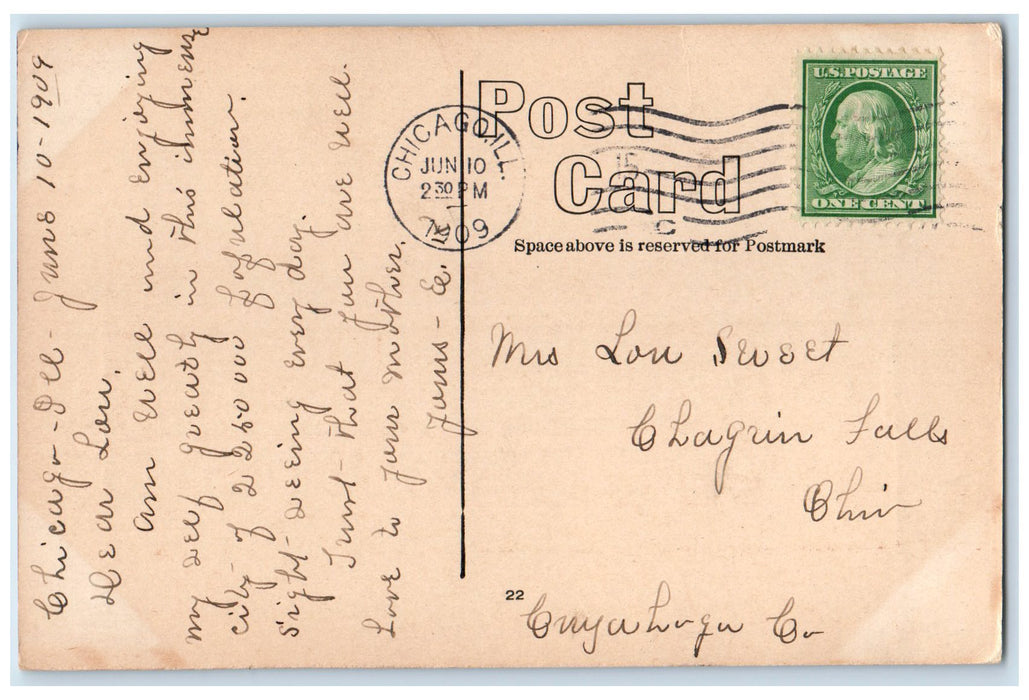 Chicago - Ill - June 10 - 1909
Dear Lou,
Am well and enjoying
my self greatly in this immense
city - of 2250000 population.
Sight - seeing every day.
Trust - that you are well.
Love to your mother.
Yours - E.
Post
Card
CHICAGO, ILL.
JUN 10
2 30 PM
1909
U.S. POSTAGE
ONE CENT
Space above is reserved for Postmark
Mrs Lou Sweet
Chagrin Falls
Ohio
22
Cuyahoga Co